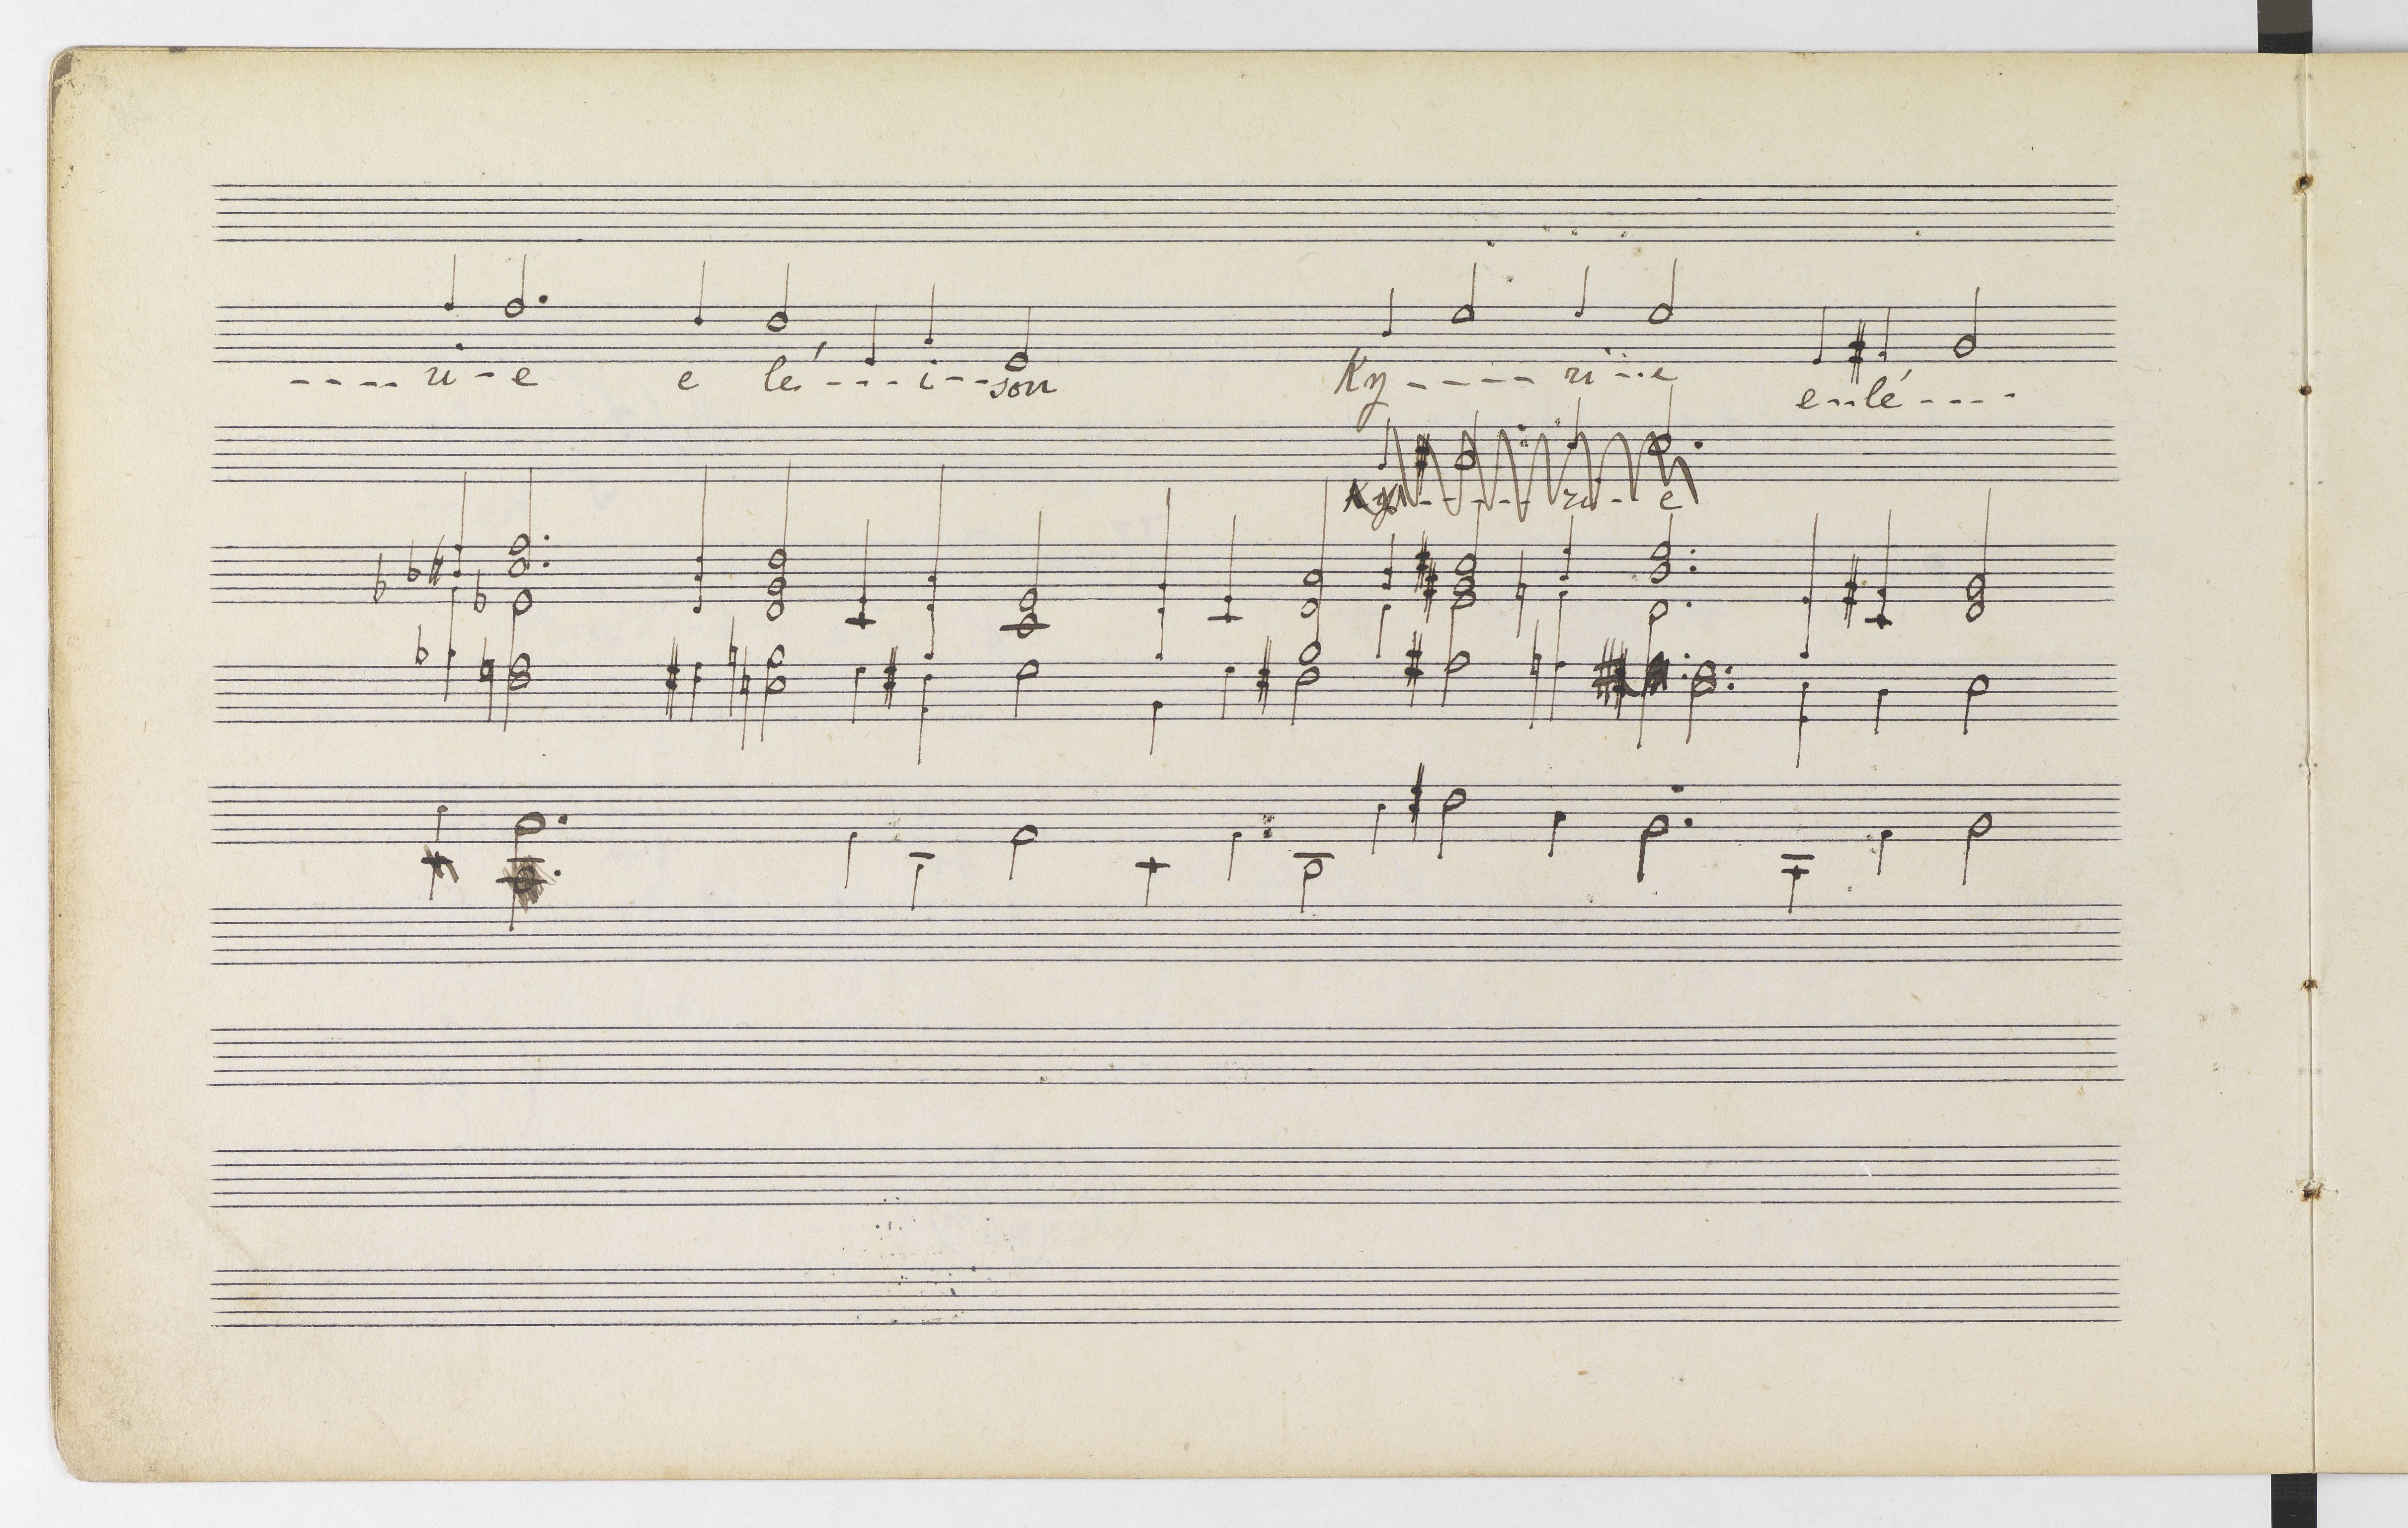 ---- ri - e e lé --- i -- son Ky ---- ri -- e
e -- lé ----
Ky ---- ri - e